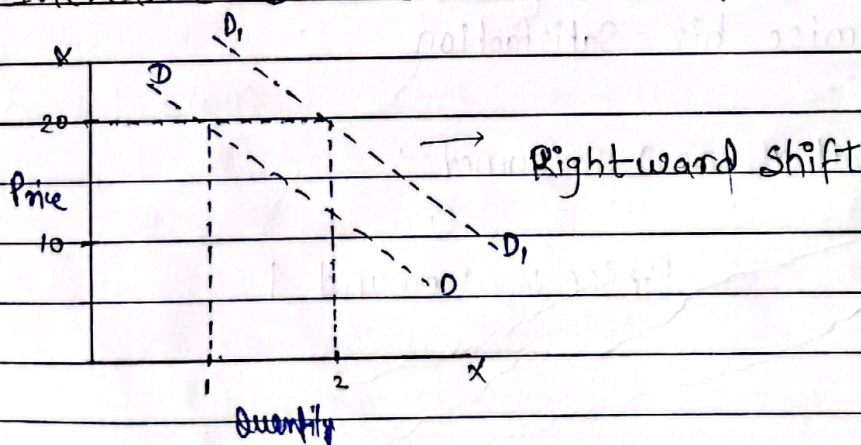 D1
X
D
20
Rightward Shift
Price
10
D1
D
X
1 2
Quantity